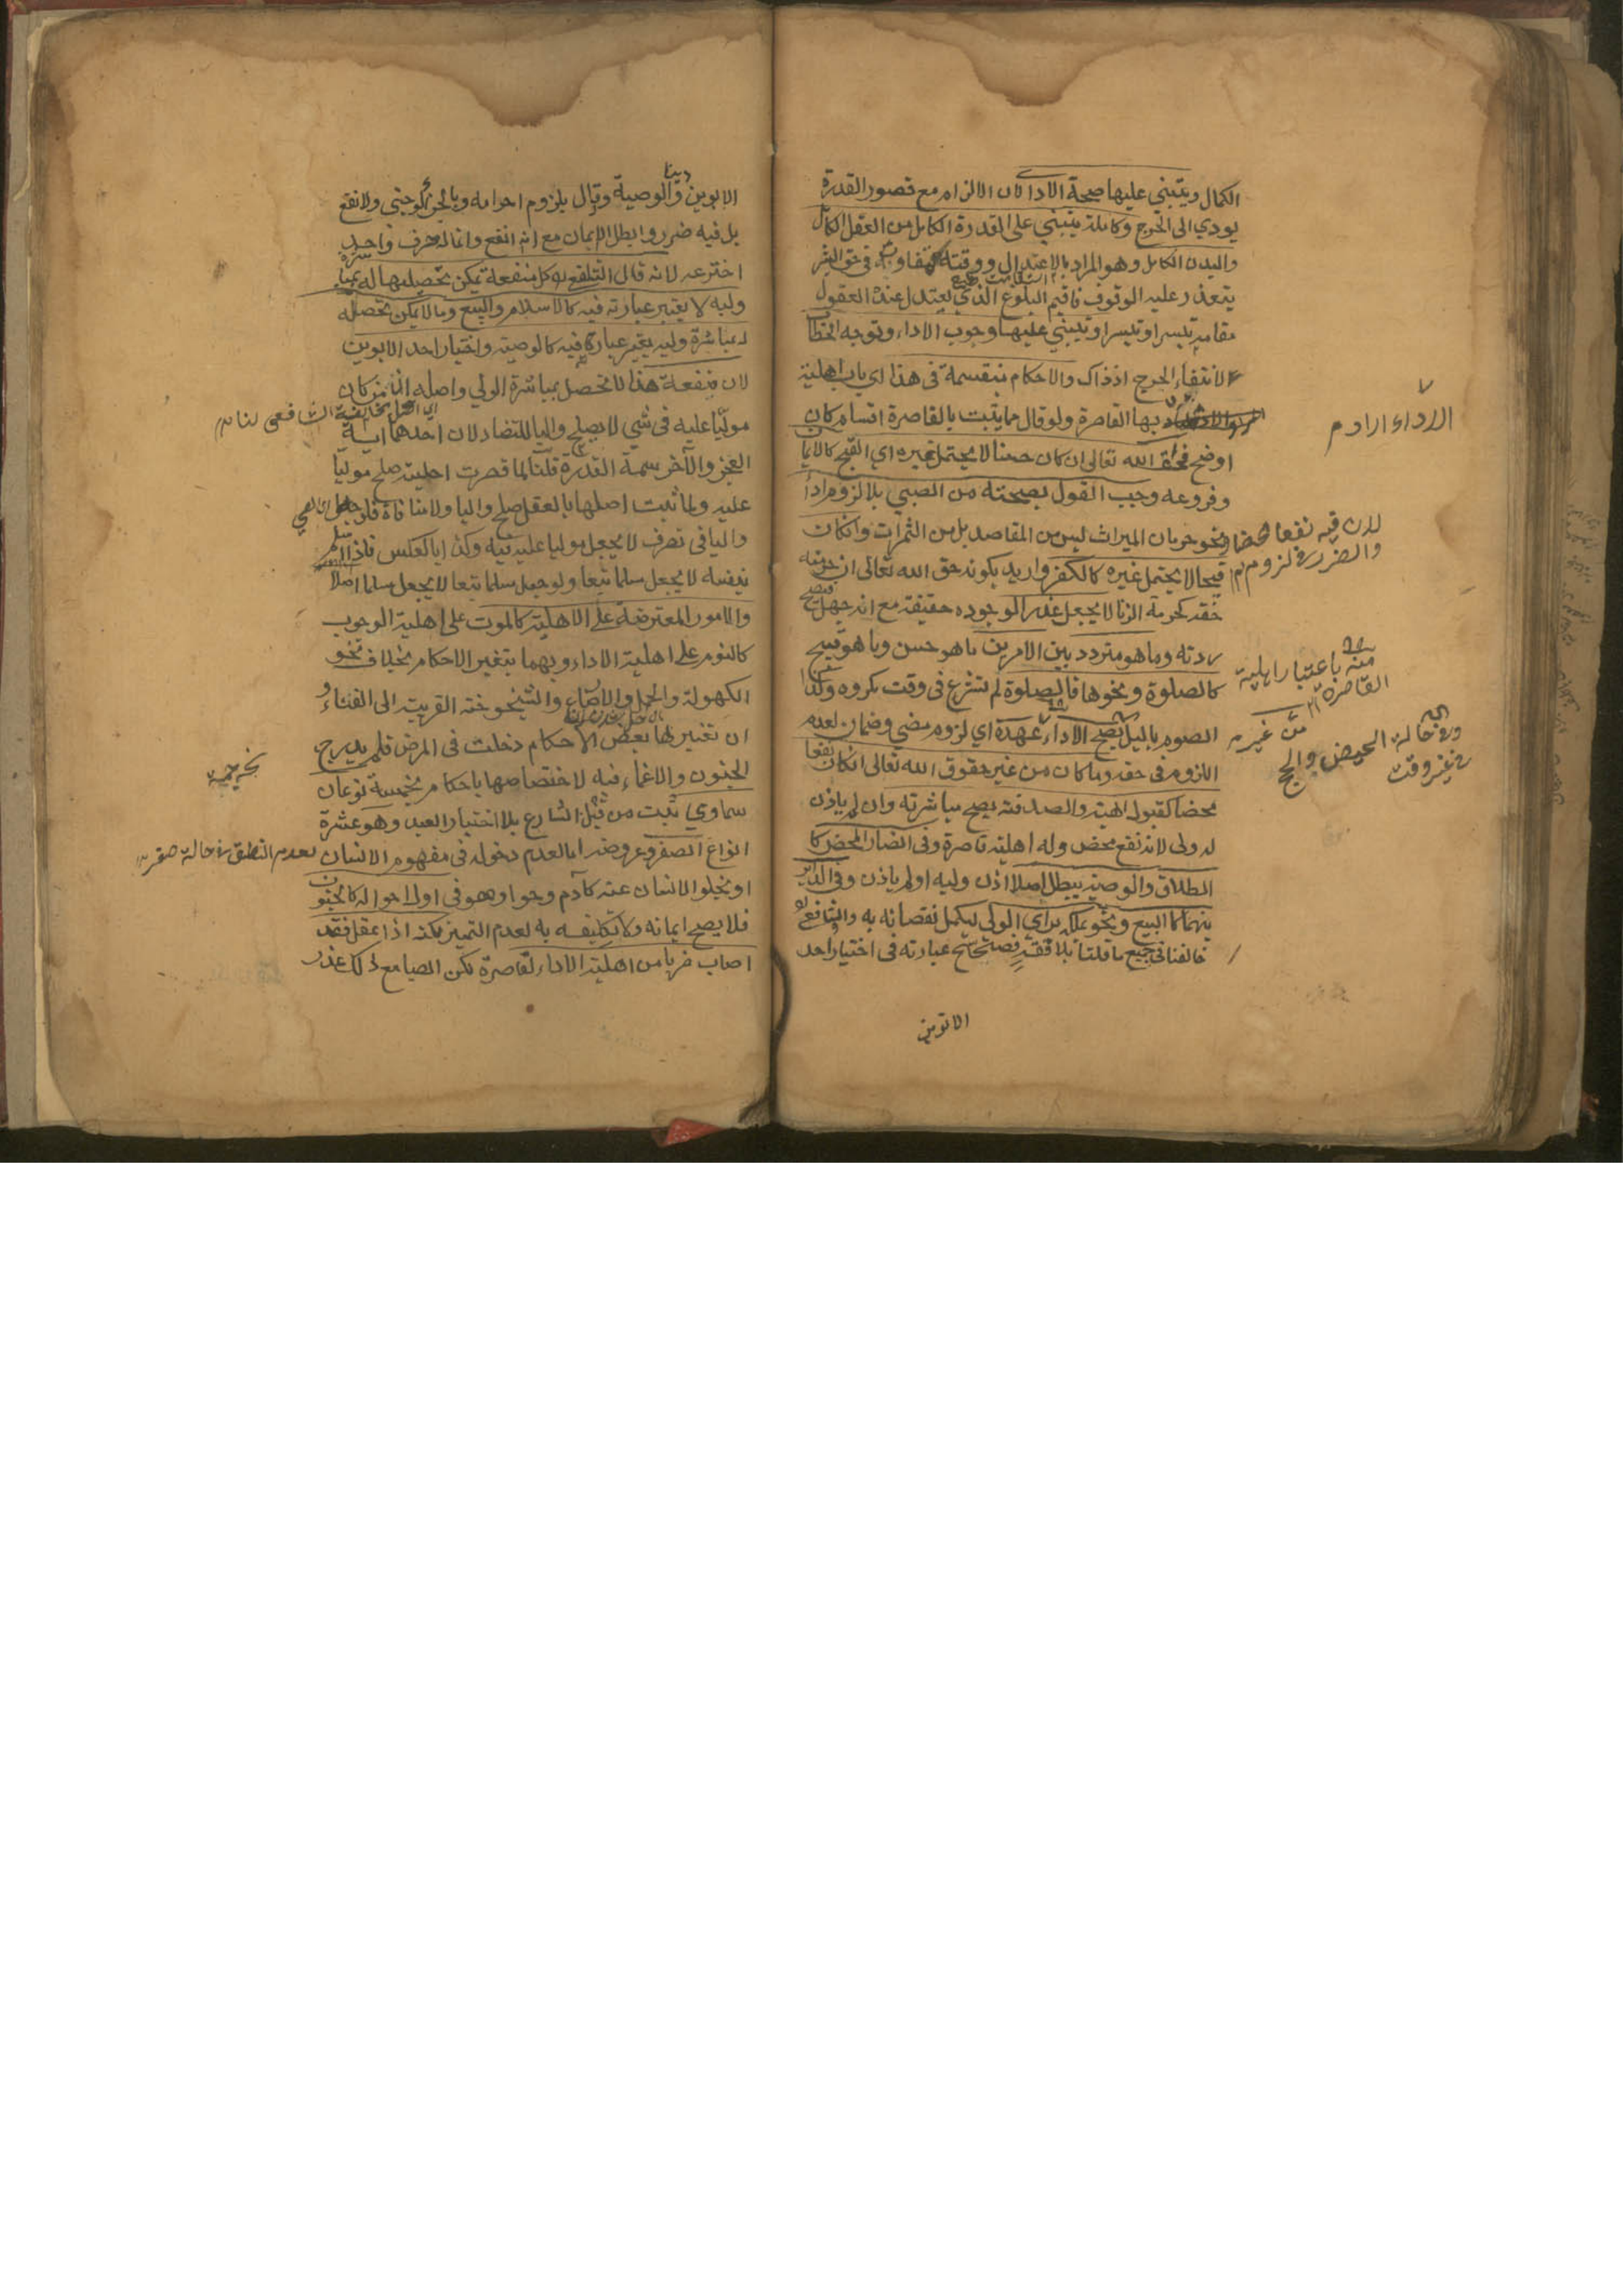 الكمال ويبتني عليها صحة الادا لان الالزام مع قصور القدرة
يودي الى الحرج وكاملة يبتني على القدرة الكامل من العقل الكامل
والبدن الكامل وهو المراد بالاعتدال ووقته متفاوت في حق البشر
يتعذر عليه الوقوف فاقيم البلوغ الذي يعتدل عنده العقول
مقامه تيسيرا ويبتني عليها وجوب الاداء وتوجه الخطاب
لانتفاء الحرج اذ ذاك والاحكام منقسمة في هذا اي باب اهلية
بها القاصرة ولو قال مما يثبت بالقاصرة اقسام كان
اوضح فحق الله تعالى ان كان حسنا لا يحتمل غيره اي القبح كالايمان
وفروعه وجب القول بصحته من الصبي بلا لزوم اداء
ونحو حرمان الميراث ليس من المقاصد بل من الثمرات وان كان
قبيحا لا يحتمل غيره كالكفر واريد بكونه حق الله تعالى ان حرمته
حقه كحرمة الزنا لا يجعل عذرا لوجوده حقيقة مع انه جهل فتصح
ردته وما هو متردد بين الامرين ما هو حسن وما هو قبيح
كالصلوة ونحوها فالصلوة لم تشرع في وقت مكروه وكذا
الصوم بالليل يصح الاداء بلا عهدة اي لزوم مضي وضمان لعدم
اللزوم في حقه وما كان من غير حقوق الله تعالى ان كان نفعا
محضا كقبول الهبة والصدقة يصح مباشرته وان لم ياذن
له ولي لانه نفع محض وله اهلية قاصرة وفي الضار المحض كا
لطلاق والوصية يبطل اصلا اذن وليه او لم ياذن وفي الداير
بينهما كالبيع ونحو يملكه براي الولي ليكمل نقصانه به والشافعي
خالفنا في جميع ما قلنا بلا فقه فصحح عبارته في اختيار احد
الابوين
الاداء اراد م
لان فيه نفعا محضا
والضرر في لزوم م
منه باعتبار اهلية
القاصرة م
من غيره
وفي حالة الحيض والحج
في غير وقت
الابوين والوصية وقال بلزوم احرامه
بل فيه ضرر وابطل الايمان مع انه انفع وانما له حرف واحد
اخترعه لانه قال الشافعي كل منفعة يمكن تحصيلها له بمباشرة
وليه لا يعتبر عبارته فيه كالاسلام والبيع وما لا يمكن تحصيله
له بمباشرة وليه يعتبر عبارته فيه كالوصية واختيار احد الابوين
لان منفعة هذا لا تحصل بمباشرة الولي واصله ان من كان
موليا عليه في شي لا يصلح واليا للتضاد لان احدهما سمة
العجز والآخر سمة القدرة قلنا لما قصرت اهليته صلح موليا
عليه ولما ثبت اصلها بالعقل صلح واليا ولا منافاة فلو جعل
واليا في تصرف لا يجعل موليا عليه فيه وكذا بالعكس فاذا اسلم
بنفسه لا يجعل مسلما تبعا ولو جعل مسلما تبعا لا يجعل مسلما اصلا
والامور المعترضة على الاهلية كالموت على اهلية الوجوب
كالنوم على اهلية الاداء وبهما يتغير الاحكام بخلاف نحو
الكهولة والحمل والارضاع والشيخوخة القريبة الى الفناء و
ان تغير بها بعض الاحكام دخلت في المرض فلم يدرج
الجنون والاغماء فيه لاختصاصها باحكام نوعان
سماوي ثبت من قبل الشارع بلا اختيار العبد وهو عشرة
انواع الصغر وعروضه اما لعدم دخوله في مفهوم الانسان
او لخلو الانسان عنه كآدم وحوا وهو في اول احواله كالجنون
فلا يصح ايمانه ولا تكليفه به لعدم التمييز لكنه اذا عقل فقد
اصاب ضربا من اهلية الاداء القاصرة لكن الصبا مع ذلك عذر
الشافعي لنا م
لعدم النطق في حالة صغر م